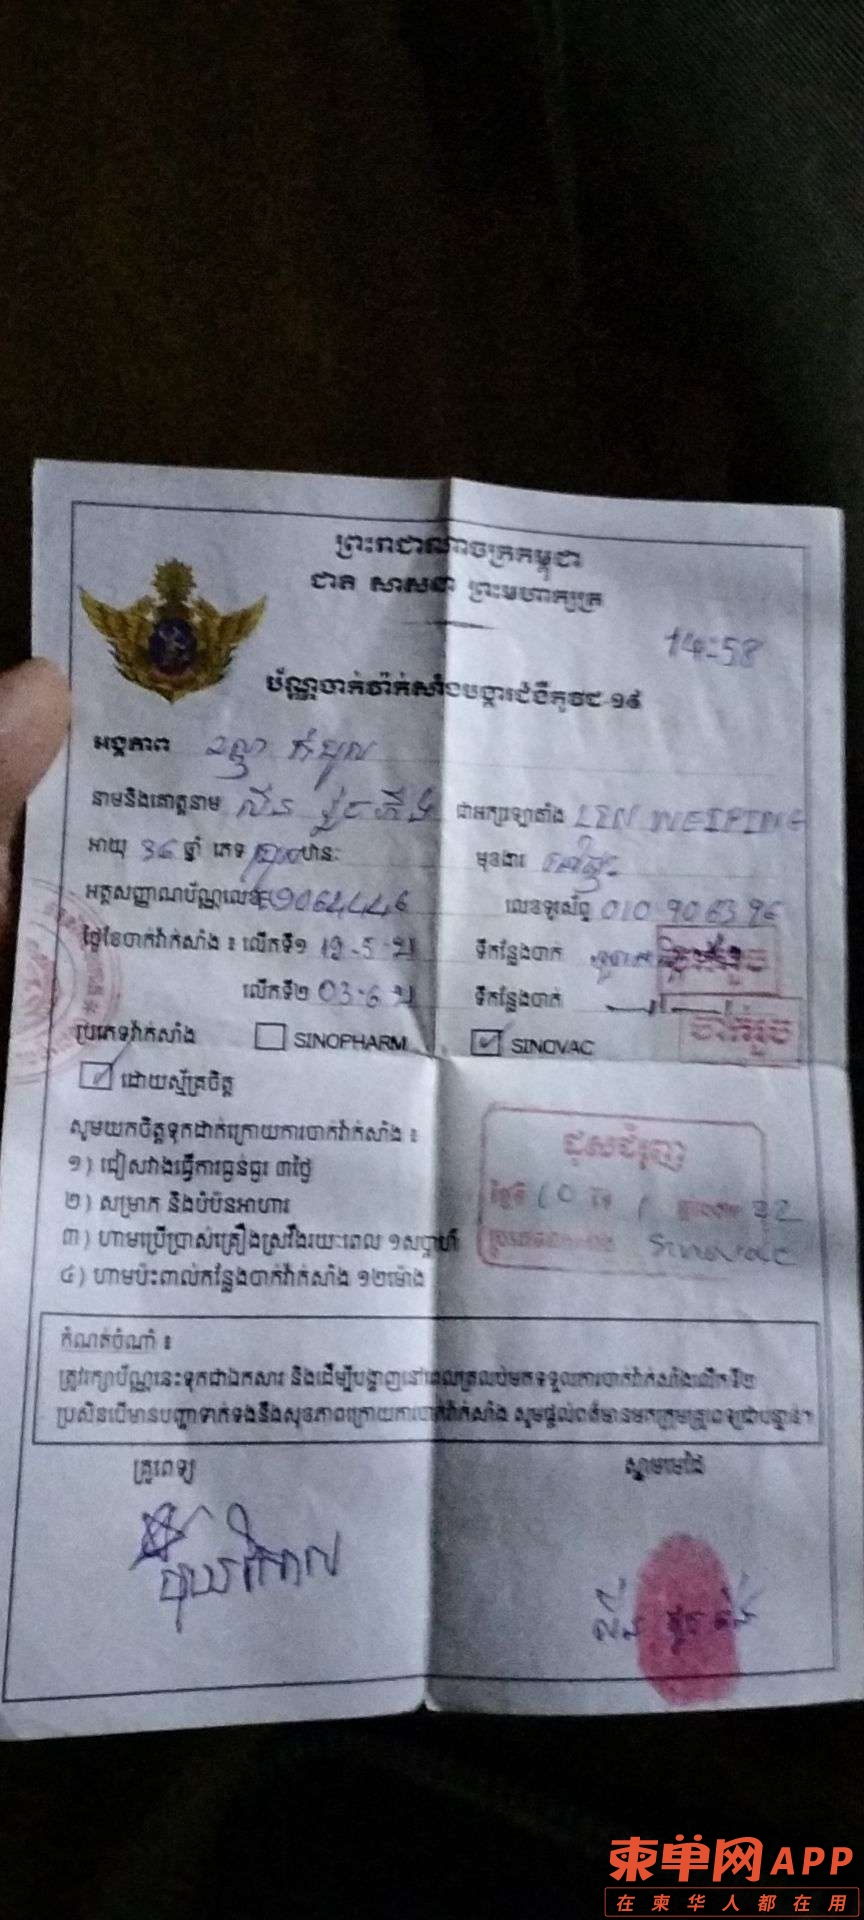 ព្រះរាជាណាចក្រកម្ពុជា
ជាតិ សាសនា ព្រះមហាក្សត្រ
14:58
ប័ណ្ណចាក់វ៉ាក់សាំងបង្ការជំងឺកូវីដ-១៩
អង្គភាព
នាមនិងគោត្តនាម លីន ជាអក្សរឡាតាំង LIN WEIPING
អាយុ 36 ឆ្នាំ ភេទ ឋានៈ មុខងារ
អត្តសញ្ញាណប័ណ្ណលេខ លេខទូរស័ព្ទ 010 906396
ថ្ងៃខែចាក់វ៉ាក់សាំង ៖ លើកទី១ ទីកន្លែងចាក់
លើកទី២ 03-6 ទីកន្លែងចាក់ ចាក់រួច
ប្រភេទវ៉ាក់សាំង SINOPHARM ✓ SINOVAC
✓ ដោយស្ម័គ្រចិត្ត
សូមយកចិត្តទុកដាក់ក្រោយការចាក់វ៉ាក់សាំង ៖
១) ជៀសវាងធ្វើការធ្ងន់ធ្ងរ ៣ថ្ងៃ
២) សម្រាក និងបំប៉នអាហារ
៣) ហាមប្រើប្រាស់គ្រឿងស្រវឹងរយៈពេល ១សប្តាហ៍
៤) ហាមប៉ះពាល់កន្លែងចាក់វ៉ាក់សាំង ១២ម៉ោង
ដូសជំរុញ
ថ្ងៃទី 10 ខែ 1 ឆ្នាំ 22
Sinovac
កំណត់ចំណាំ ៖
ត្រូវរក្សាប័ណ្ណនេះទុកជាឯកសារ និងដើម្បីបង្ហាញនៅពេលត្រលប់មកទទួលការចាក់វ៉ាក់សាំងលើកទី២
ប្រសិនបើមានបញ្ហាទាក់ទងនឹងសុខភាពក្រោយការចាក់វ៉ាក់សាំង សូមផ្តល់ព័ត៌មានមកក្រុមគ្រូពេទ្យជាបន្ទាន់។
គ្រូពេទ្យ ស្នាមមេដៃ
柬单网APP
在柬华人都在用